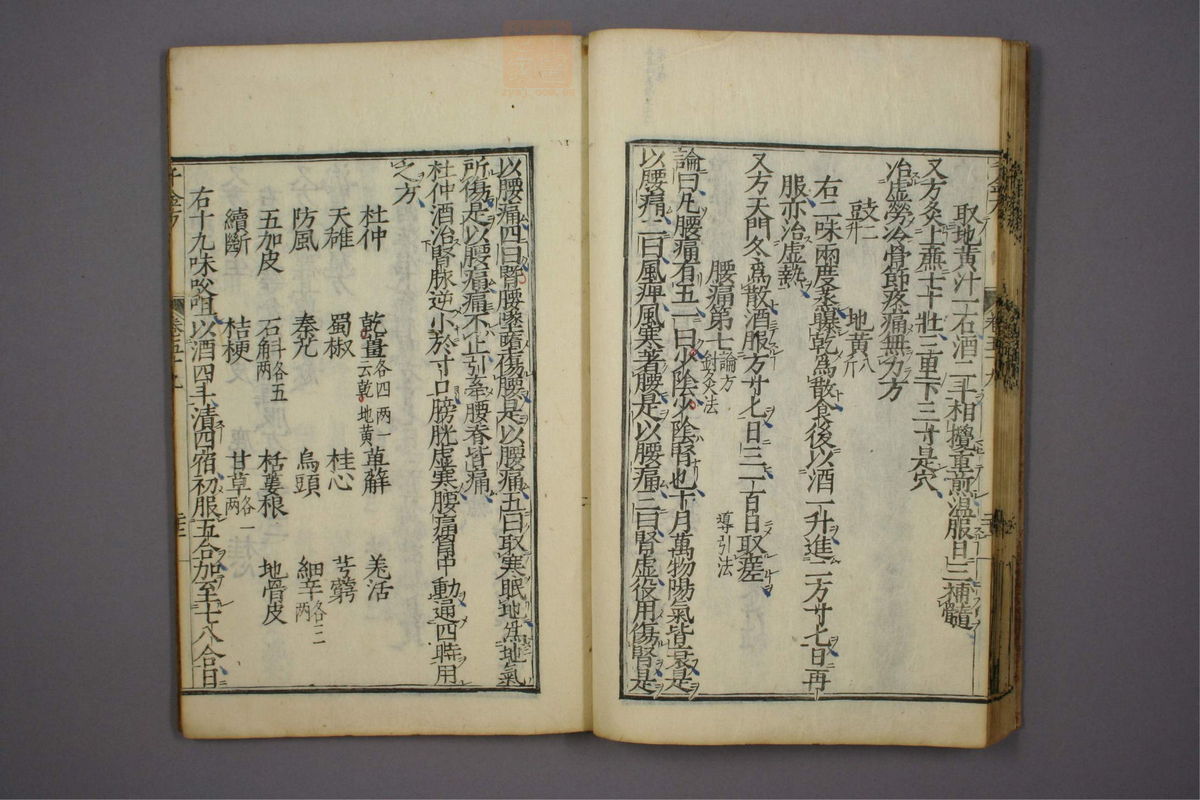 取地黄汁一石酒二斗相攪重煎温服日三補髓
又方灸上廉七十壯三里下三寸是穴
治虚勞冷骨節疼痛無力方
豉二升 地黄八斤
右二味兩度蒸暴乾爲散食後以酒一升進二方寸匕日再
服亦治虚熱
又方天門冬爲散酒服方寸匕日三一百日取瘥
腰痛第七 論方 針灸法 導引法
論曰凡腰痛有五一曰少陰少陰腎也十月萬物陽氣皆衰是
以腰痛二曰風痺風寒著腰是以腰痛三曰腎虚役用傷腎是
以腰痛四曰腎腰墜墮傷腰是以腰痛五曰取寒眠地爲地氣
所傷是以腰痛痛不止引牽腰脊皆痛
杜仲酒治腎脉逆小於寸口膀胱虚寒腰痛胷中動通四時用
之方
杜仲 乾薑各四兩一云乾地黄 萆薢 羌活
天雄 蜀椒 桂心 芎藭
防風 秦艽 烏頭 細辛各三兩
五加皮 石斛各五兩 栝蔞根 地骨皮
續斷 桔梗 甘草各一兩
右十九味㕮咀以酒四斗漬四宿初服五合加至七八合日
千金方 卷五十九